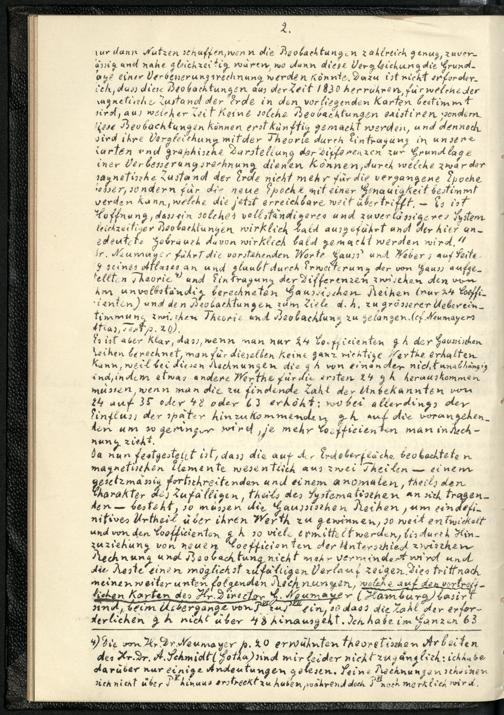 2.
nur dann Nutzen schaffen, wenn die Beobachtungen zahlreich genug, zuver-
lässig und nahe gleichzeitig wären, wo dann diese Vergleichung die Grund-
lage einer Verbesserungsrechnung werden könnte. Dazu ist nicht erforder-
lich, dass diese Beobachtungen aus der Zeit 1830 herrühren, für welche der
magnetische Zustand der Erde in den vorliegenden Karten bestimmt
wird, aus welcher Zeit keine solche Beobachtungen existiren, sondern
diese Beobachtungen können erst künftig gemacht werden, und dennoch
wird ihre Vergleichung mit der Theorie durch Eintragung in unsere
Karten und graphische Darstellung der Differenzen zur Grundlage
einer Verbesserungsrechnung dienen können, durch welche zwar der
magnetische Zustand der Erde nicht mehr für die vergangene Epoche
besser, sondern für die neue Epoche mit einer Genauigkeit bestimmt
werden kann, welche die jetzt erreichbare weit übertrifft. – Es ist
Hoffnung, dass ein solches vollständigeres und zuverlässigeres System
gleichzeitiger Beobachtungen wirklich bald ausgeführt und der hier an-
gedeutete Gebrauch davon wirklich bald gemacht werden wird."
Dr. Neumayer führt die vorstehenden Worte Gauss' und Weber's auf Seite
9 seines Atlasses an und glaubt durch Erweiterung der von Gauss aufge-
stellten Theorie und Eintragung der Differenzen zwischen den von
ihm unvollständig berechneten Gaussischen Reihen (nur 24 Coeffi-
cienten) und den Beobachtungen zum Ziele d. h. zu grösserer Ueberein-
stimmung zwischen Theorie und Beobachtung zu gelangen. (cf Neumayers
Atlas, Text p. 20).
Es ist aber klar, dass, wenn man nur 24 Coefficienten g h der Gaussischen
Reihen berechnet, man für dieselben keine ganz richtige Werthe erhalten
kann, weil bei diesen Rechnungen die g h von einander nicht unabhängig
sind, indem etwas andere Werthe für die ersten 24 g h herauskommen
müssen, wenn man die zu findende Zahl der Unbekannten von
24 auf 35 oder 48 oder 63 erhöht; wobei allerdings der
Einfluss der später hinzukommenden g h auf die vorangehen-
den um so geringer wird, je mehr Coefficienten man in Rech-
nung zieht.
Da nun festgestellt ist, dass die auf der Erdoberfläche beobachteten
magnetischen Elemente wesentlich aus zwei Theilen – einem
gesetzmässig fortschreitenden und einem anomalen, theils den
Charakter des Zufälligen, theils des Systematischen an sich tragen-
den – besteht, so müssen die Gaussischen Reihen, um ein defi-
nitives Urtheil über ihren Werth zu gewinnen, so weit entwickelt
und von den Coefficienten g h so viele ermittelt werden, bis durch Hin-
zuziehung von neuen Coefficienten der Unterschied zwischen
Rechnung und Beobachtung nicht mehr vermindert wird und
die Reste einen möglichst zufälligen Verlauf zeigen. Dies tritt nach
meinen weiter unten folgenden Rechnungen, welche auf den vortreff-
lichen Karten des Hr. Director G. Neumayer (Hamburg) basirt
sind, beim Uebergange von zu ein, so dass die Zahl der erfor-
derlichen g h nicht über 48 hinausgeht. Ich habe im Ganzen 63
*) Die von Hr. Dr. Neumayer p. 20 erwähnten theoretischen Arbeiten
des Hr. Dr. A. Schmidt (Gotha) sind mir leider nicht zugänglich: ich habe
darüber nur einige Andeutungen gelesen. Seine Rechnungen scheinen
sich nicht über hinaus erstreckt zu haben, während doch noch merklich wird.